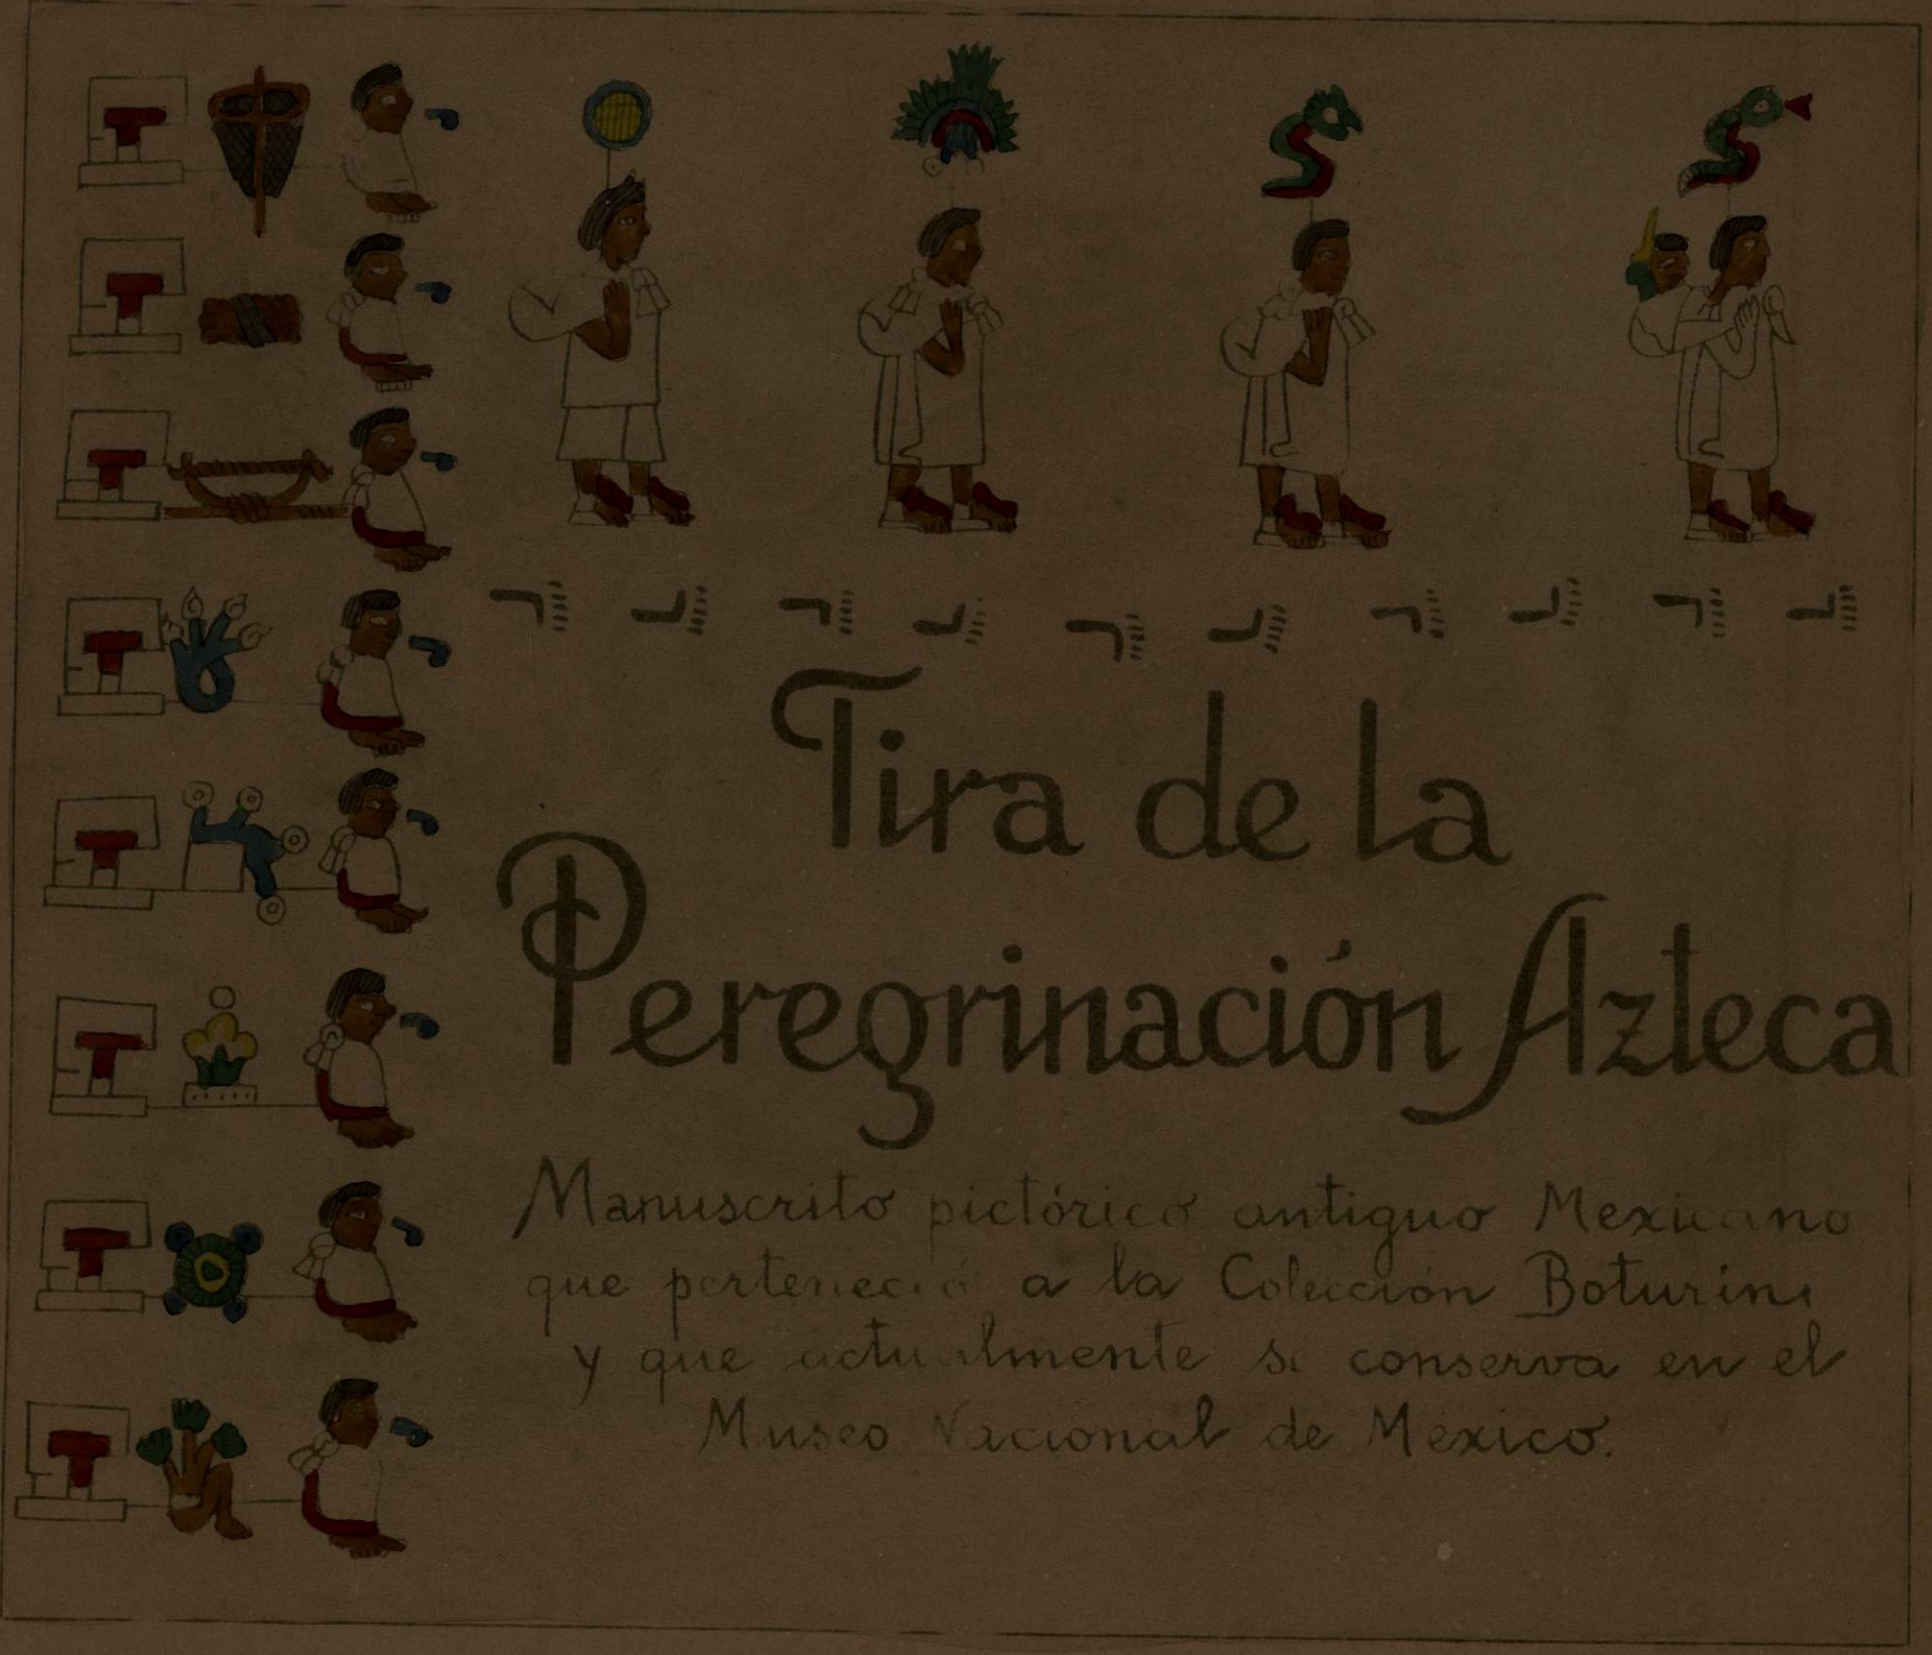 Tira de la
Peregrinación Azteca
Manuscrito pictórico antiguo Mexicano
que perteneció a la Colección Boturini
y que actualmente se conserva en el
Museo Nacional de México.